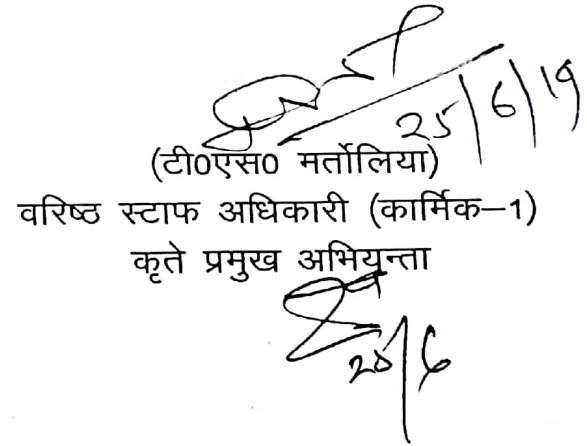 25/6/19
(टी0एस0 मर्तोलिया)
वरिष्ठ स्टाफ अधिकारी (कार्मिक–1)
कृते प्रमुख अभियन्ता